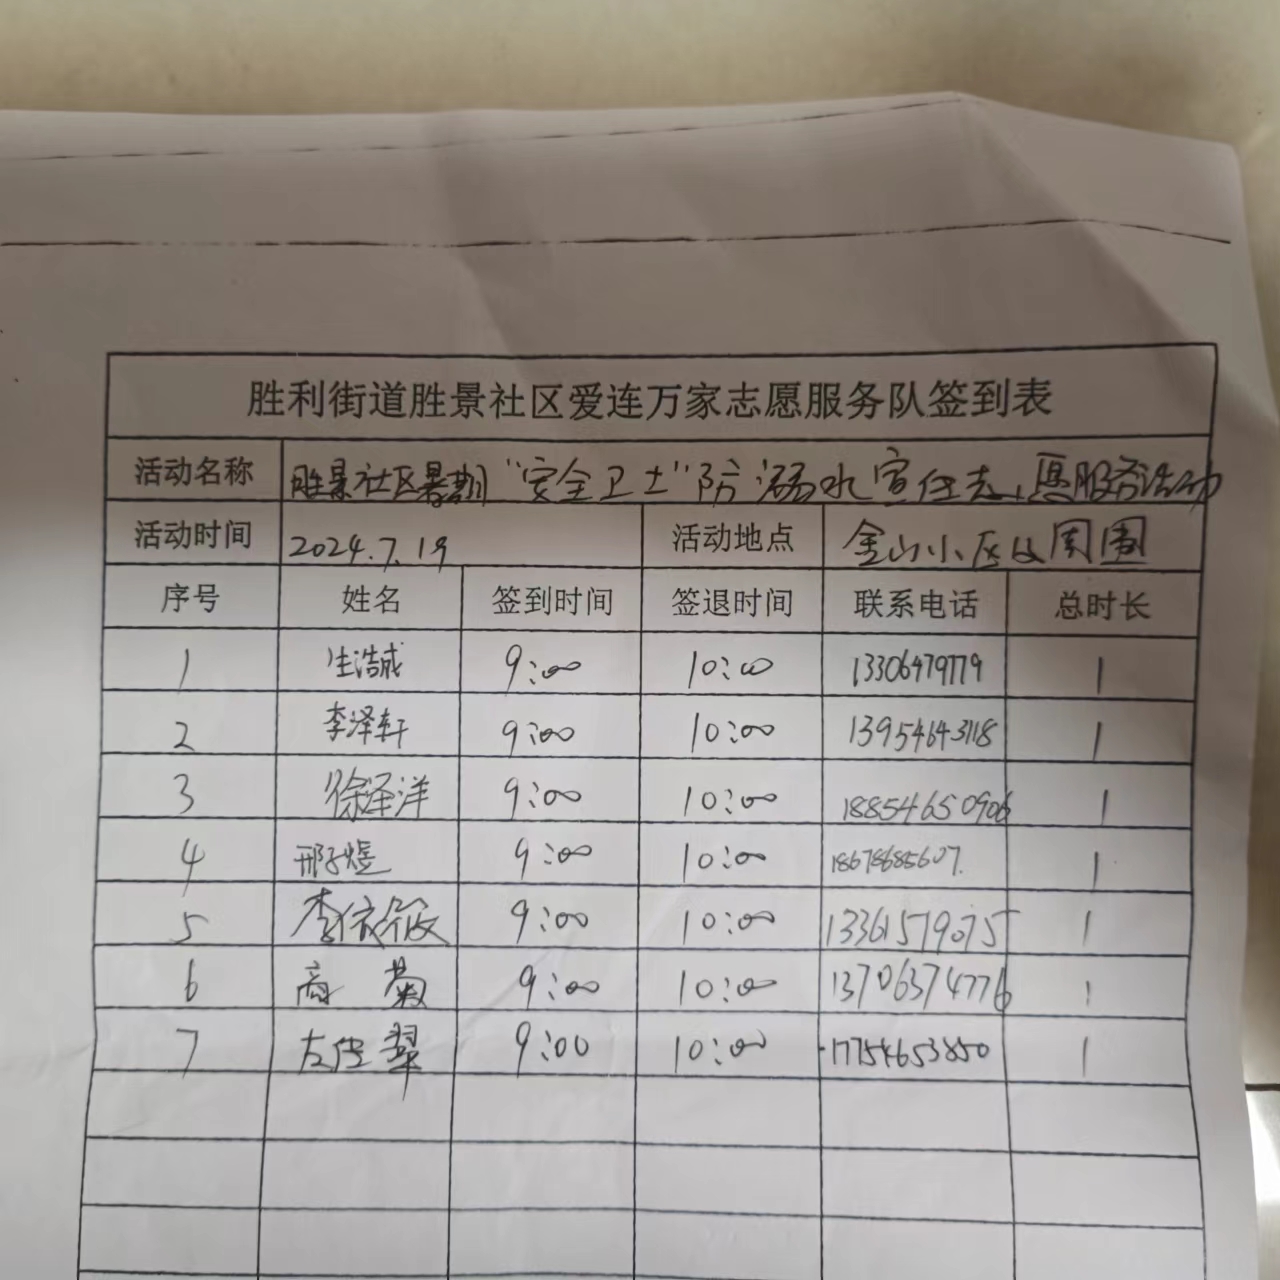 胜利街道胜景社区爱连万家志愿服务队签到表
活动名称 胜景社区暑期“安全卫士”防溺水宣传志愿服务活动
活动时间 2024.7.19 活动地点 金山小区及周围
序号 姓名 签到时间 签退时间 联系电话 总时长
1 生浩成 9:00 10:00 13306479779 1
2 李泽轩 9:00 10:00 13954643118 1
3 徐泽洋 9:00 10:00 18854650906 1
4 邢子煜 9:00 10:00 18678685607. 1
5 李依筱 9:00 10:00 13361579075 1
6 商菊 9:00 10:00 13706374776 1
7 9:00 10:00 17754653850 1